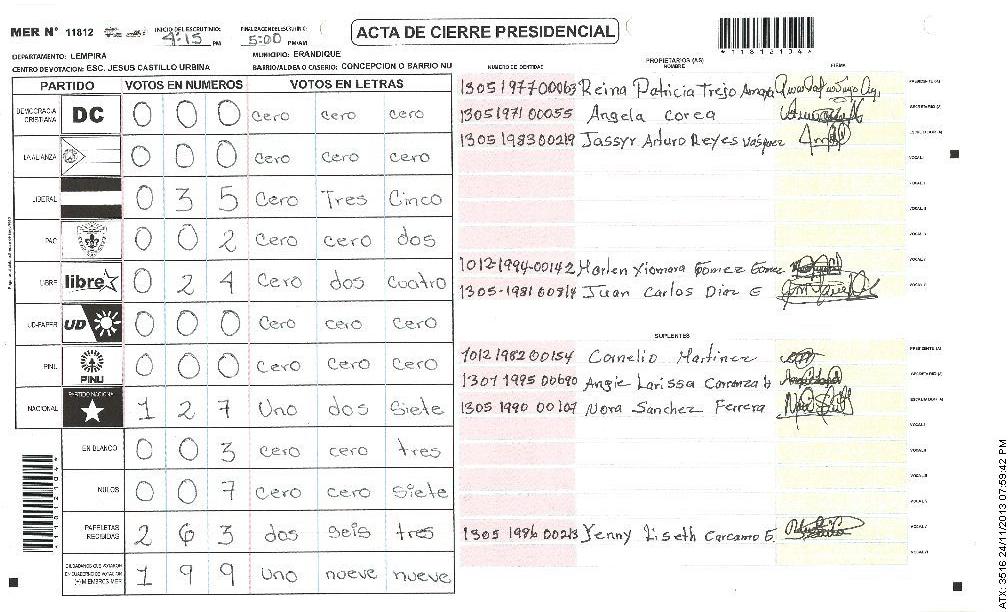 MER Nº 11812
INICIO DEL ESCRUTINIO: 4:15 PM
FINALIZACION DEL ESCRUTINIO: 5:00 PM/AM
ACTA DE CIERRE PRESIDENCIAL
DEPARTAMENTO: LEMPIRA
MUNICIPIO: ERANDIQUE
CENTRO DE VOTACION: ESC. JESUS CASTILLO URBINA
BARRIO/ALDEA O CASERIO: CONCEPCION O BARRIO NU
PARTIDO VOTOS EN NUMEROS VOTOS EN LETRAS
DEMOCRACIA CRISTIANA DC 0 0 0 cero cero cero
LA ALIANZA 0 0 0 cero cero cero
LIBERAL 0 3 5 cero Tres Cinco
PAC 0 0 2 cero cero dos
LIBRE libre 0 2 4 cero dos cuatro
UD-FAPER UD 0 0 0 cero cero cero
PINU PINU 0 0 0 cero cero cero
NACIONAL PARTIDO NACIONAL 1 2 7 Uno dos Siete
EN BLANCO 0 0 3 cero cero tres
NULOS 0 0 7 cero cero siete
PAPELETAS RECIBIDAS 2 6 3 dos seis tres
CIUDADANOS QUE VOTARON EN CUADERNO DE VOTACION (+) MIEMBROS MER 1 9 9 uno nueve nueve
NUMERO DE IDENTIDAD PROPIETARIOS (AS) NOMBRE FIRMA
1305197700063 Reina Patricia Trejo Amaya PRESIDENTE (A)
1305197100055 Angela corea SECRETARIO (A)
1305198300219 Jassyr Arturo Reyes Vásquez ESCRUTADOR (A)
VOCAL I
VOCAL II
VOCAL III
VOCAL IV
1012-1994-00142 Marlen Xiomara Gomez Gomez
1305-1981 00814 Juan Carlos Diaz E
SUPLENTES
1012 1982 00154 Cornelio Martinez PRESIDENTE (A)
1307 1995 00690 Angie Larissa Carranza SECRETARIO (A)
1305 1990 00109 Nora Sanchez Ferrera ESCRUTADOR (A)
VOCAL I
VOCAL II
VOCAL III
VOCAL IV
1305 1986 00213 Yenny Liseth Carcamo E. VOCAL V
VOCAL VI
*11812104*
ATX: 3516 24/11/2013 07:59:42 PM